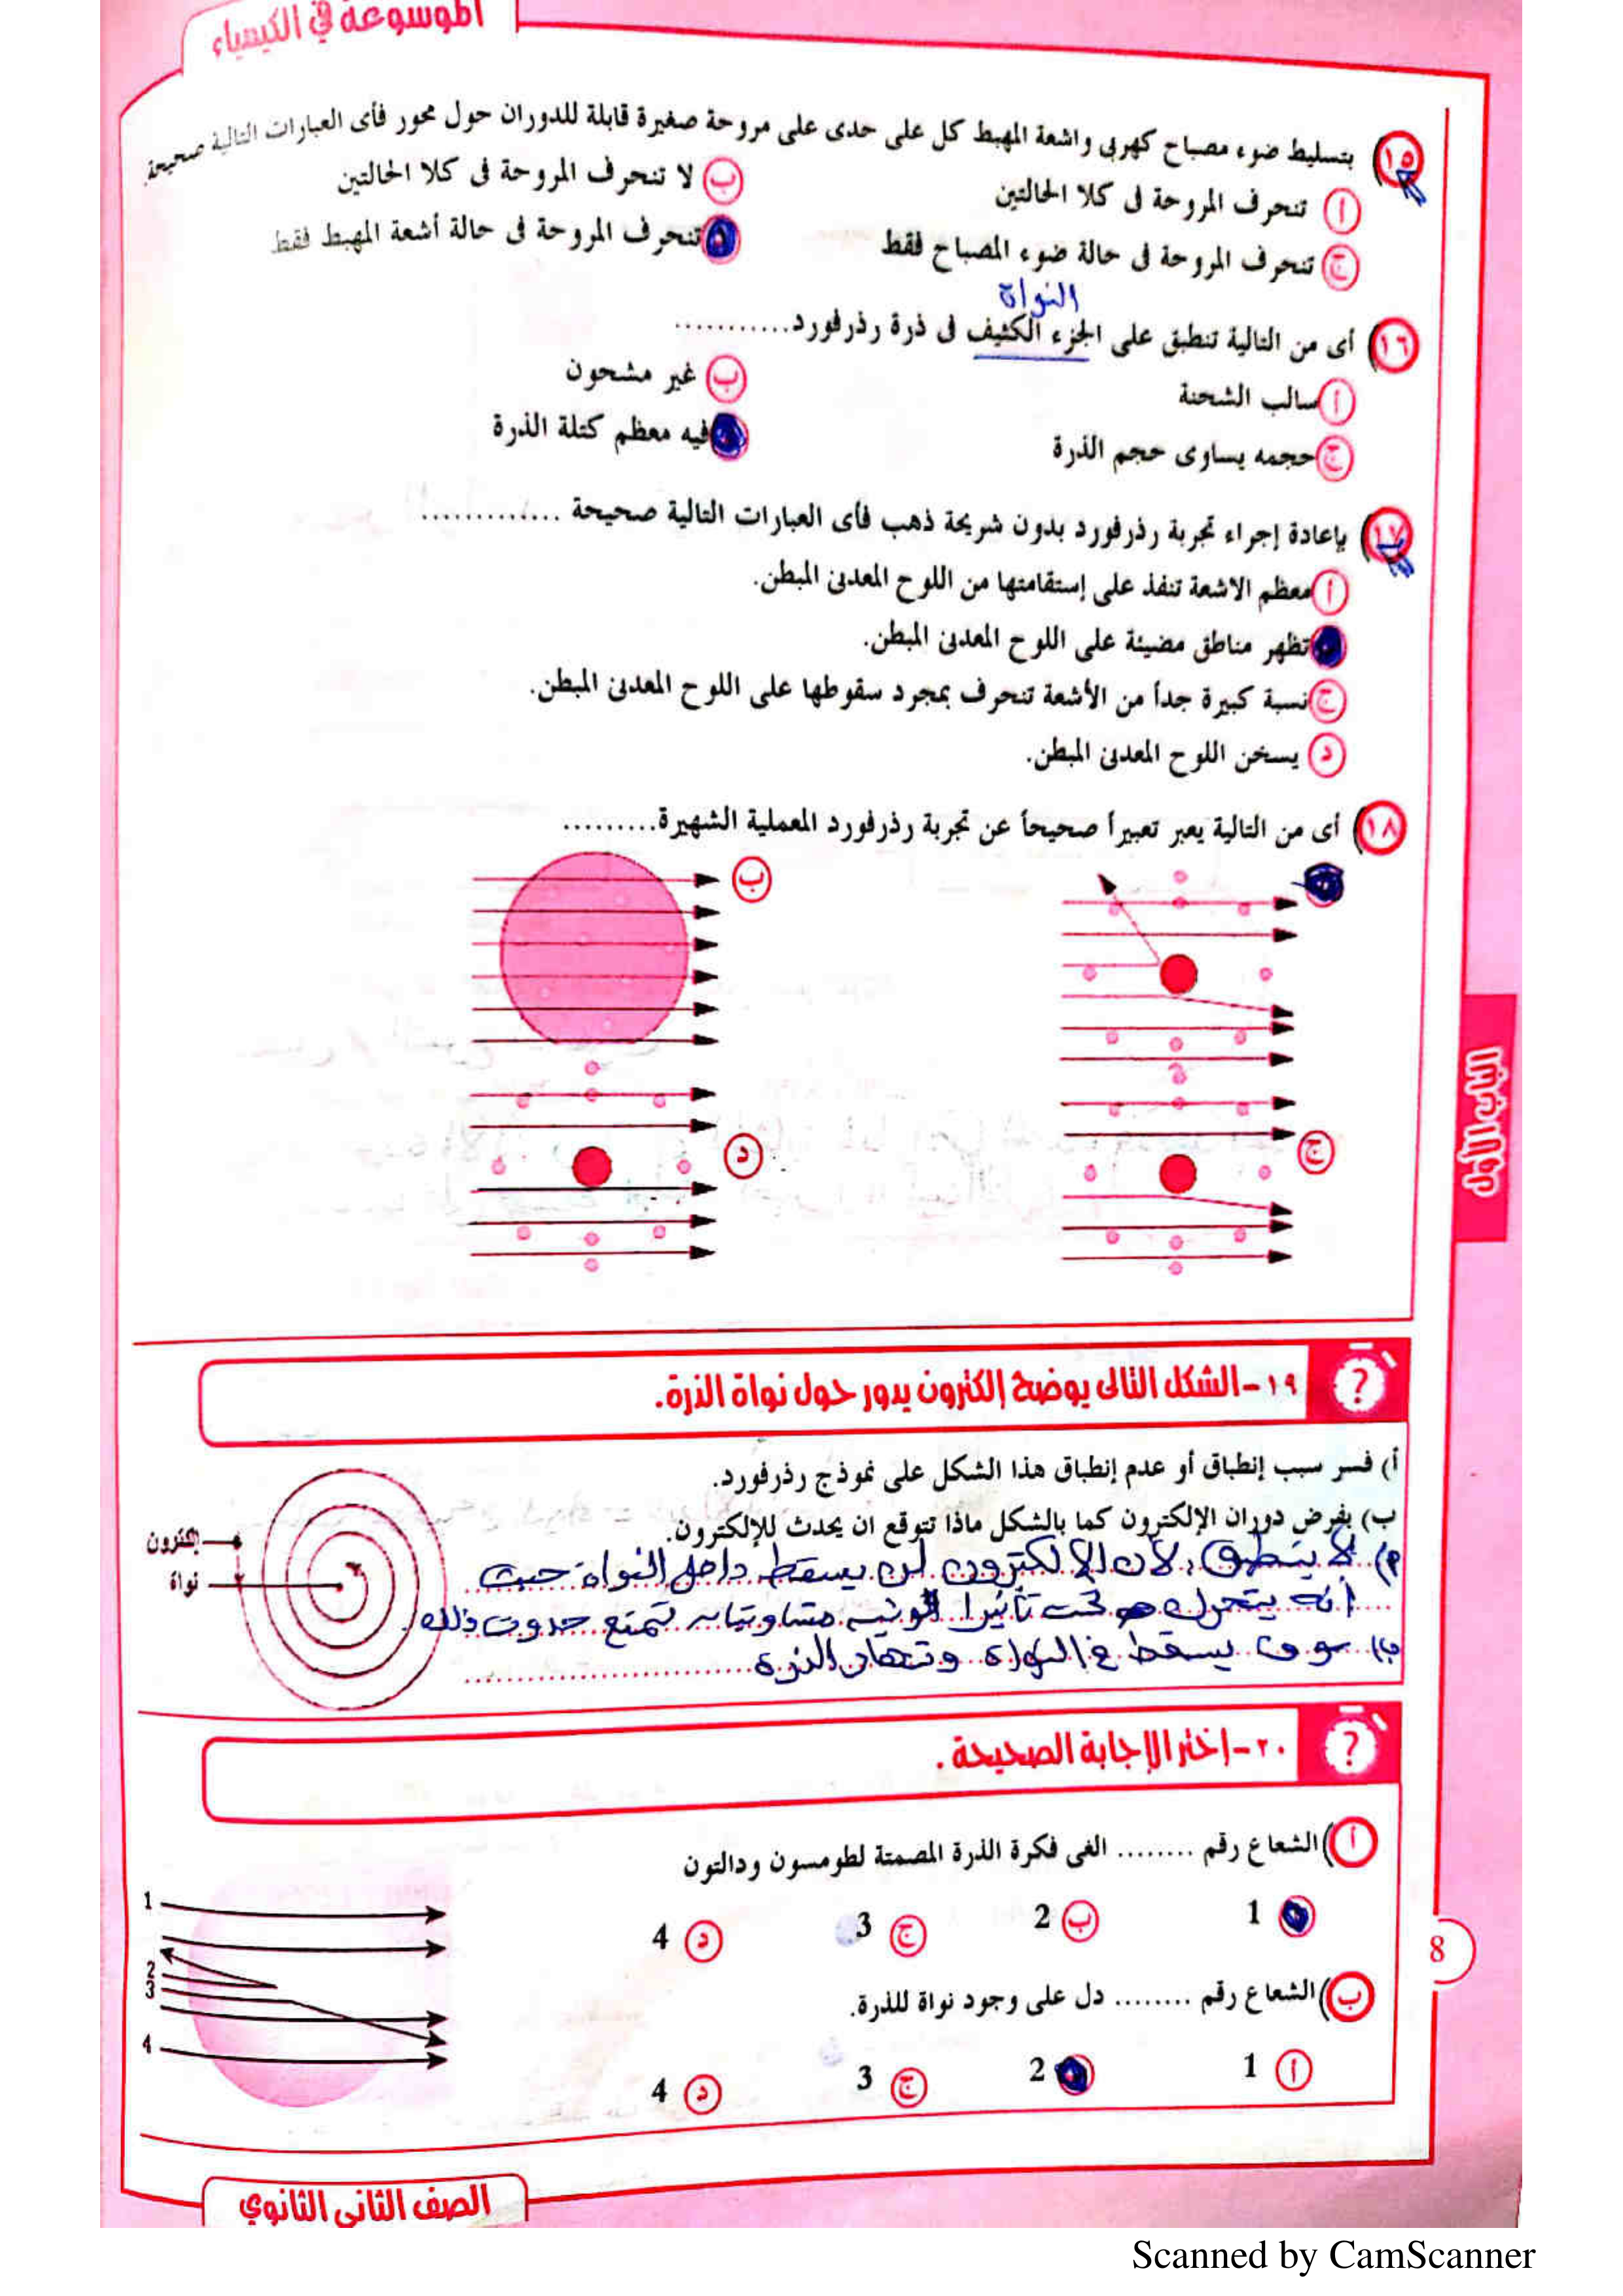 الموسوعة في الكيمياء
١٥ بتسليط ضوء مصباح كهربى واشعة المهبط كل على حدى على مروحة صغيرة قابلة للدوران حول محور فأى العبارات التالية صحيحة.
أ تنحرف المروحة فى كلا الحالتين
ب لا تنحرف المروحة فى كلا الحالتين
ج تنحرف المروحة فى حالة ضوء المصباح فقط
تنحرف المروحة فى حالة أشعة المهبط فقط
النواة
١٦ أى من التالية تنطبق على الجزء الكثيف فى ذرة رذرفورد...........
أ سالب الشحنة
ب غير مشحون
ج حجمه يساوى حجم الذرة
فيه معظم كتلة الذرة
١٧ بإعادة إجراء تجربة رذرفورد بدون شريحة ذهب فأى العبارات التالية صحيحة .............
أ معظم الاشعة تنفذ على إستقامتها من اللوح المعدنى المبطن.
تظهر مناطق مضيئة على اللوح المعدنى المبطن.
ج نسبة كبيرة جداً من الأشعة تنحرف بمجرد سقوطها على اللوح المعدنى المبطن.
د يسخن اللوح المعدنى المبطن.
١٨ أى من التالية يعبر تعبيراً صحيحاً عن تجربة رذرفورد المعملية الشهيرة.........
ب
ج
د
الباب الأول
؟ ١٩-الشكل التالى يوضح إلكترون يدور حول نواة الذرة.
أ) فسر سبب إنطباق أو عدم إنطباق هذا الشكل على نموذج رذرفورد.
ب) بفرض دوران الإلكترون كما بالشكل ماذا تتوقع ان يحدث للإلكترون.
إلكترون
نواة
أ) لا ينطبق، لأن الإلكترون لن يسقط داخل النواة حيث
أنه يتحرك تحت تأثير قوتين متساويتين تمنع حدوث ذلك.
ب) سوف يسقط في النواة وتنهار الذرة
؟ ٢٠-إختر الإجابة الصحيحة .
أ) الشعاع رقم ........ الغى فكرة الذرة المصمتة لطومسون ودالتون
1
ب 2
ج 3
د 4
ب) الشعاع رقم ........ دل على وجود نواة للذرة.
أ 1
2
ج 3
د 4
1
2
3
4
8
الصف الثانى الثانوي
Scanned by CamScanner